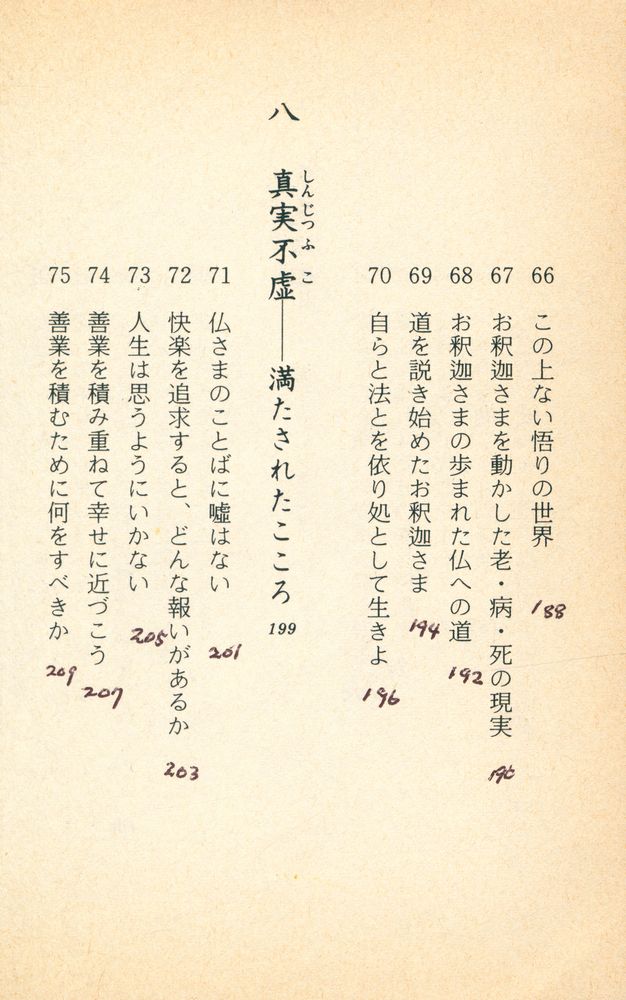 66 この上ない悟りの世界 188
67 お釈迦さまを動かした老・病・死の現実 190
68 お釈迦さまの歩まれた仏への道 192
69 道を説き始めたお釈迦さま 194
70 自らと法とを依り処として生きよ 196
八 真実不虚――満たされたこころ 199
しんじつふこ
71 仏さまのことばに嘘はない 201
72 快楽を追求すると、どんな報いがあるか 203
73 人生は思うようにいかない 205
74 善業を積み重ねて幸せに近づこう 207
75 善業を積むために何をすべきか 209